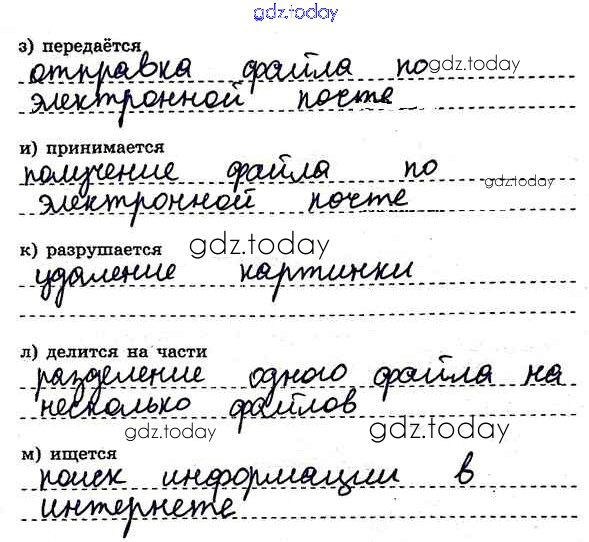 gdz.today
з) передаётся
отправка файла по gdz.today
электронной почте
и) принимается
получение файла по
gdz.today
электронной почте
к) разрушается gdz.today
удаление картинки
л) делится на части
разделение одного файла на
несколько файлов
gdz.today gdz.today
м) ищется
поиск информации в
интернете